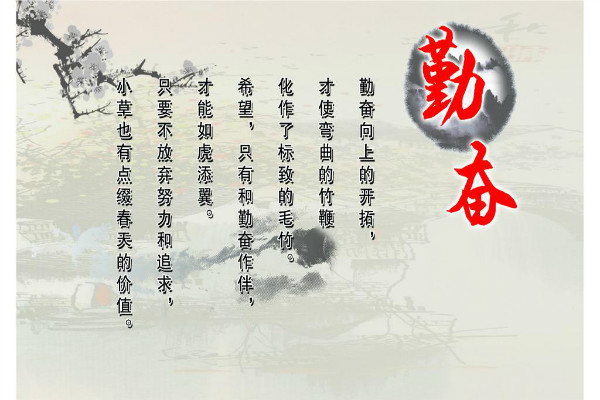 勤奋
勤奋向上的开拓,
才使弯曲的竹鞭
化作了标致的毛竹。
希望,只有和勤奋作伴,
才能如虎添翼。
只要不放弃努力和追求,
小草也有点缀春天的价值。